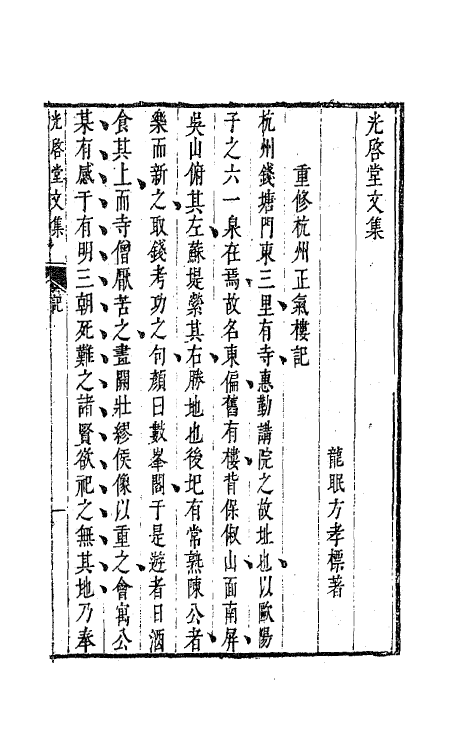 光啓堂文集
龍眠方孝標著
重修杭州正氣樓記
杭州錢塘門東三里有寺惠勤講院之故址也以歐陽
子之六一泉在焉故名東偏舊有樓背保俶山面南屏
吳山俯其左蘇堤縈其右勝地也後圮有常熟陳公者
樂而新之取錢考功之句顏曰數峯閣于是遊者日酒
食其上而寺僧厭苦之畫關壯繆侯像以重之會寓公
某有感于有明三朝死難之諸賢欲祀之無其地乃奉
光啓堂文集
記
一